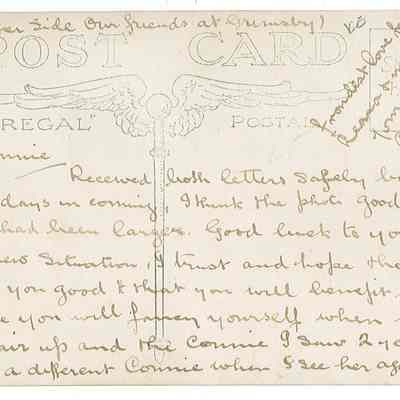 er Side Our friends at Grimsby!
POST CARD
REGAL" POSTAL
Fondest love
nnie
Received both letters safely b
days in coming, I think the photo good
had been larger. Good luck to yo
ew Situation, I trust and hope the
you good & that you will benefit
e you will fancy yourself when
air up and the Connie I saw 2 ye
a different Connie when I see her aga